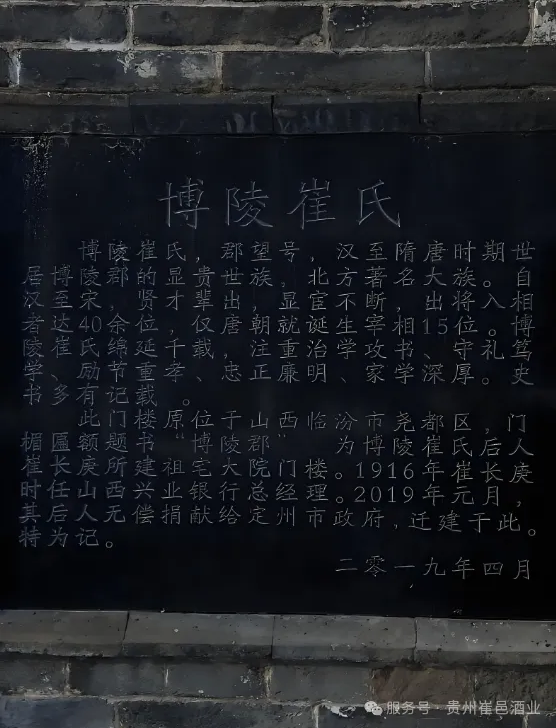 博陵崔氏
博陵崔氏，郡望号，汉至隋唐时期世
居博陵郡的显贵世族，北方著名大族。自
汉至宋，贤才辈出，显宦不断，出将入相
者达40余位，仅唐朝就诞生宰相15位。博
陵崔氏绵延千载，注重治学攻书、守礼笃
学、励节重孝、忠正廉明、家学深厚。史
书多有记载。
此门楼原位于山西临汾市尧都区，门
楣匾额题书“博陵郡”为博陵崔氏后人
崔长庚所建祖宅大院门楼。1916年崔长庚
时任山西兴业银行总经理。2019年元月，
其后人无偿捐献给定州市政府，迁建于此。
特为记。
二零一九年四月
服务号·贵州崔邑酒业